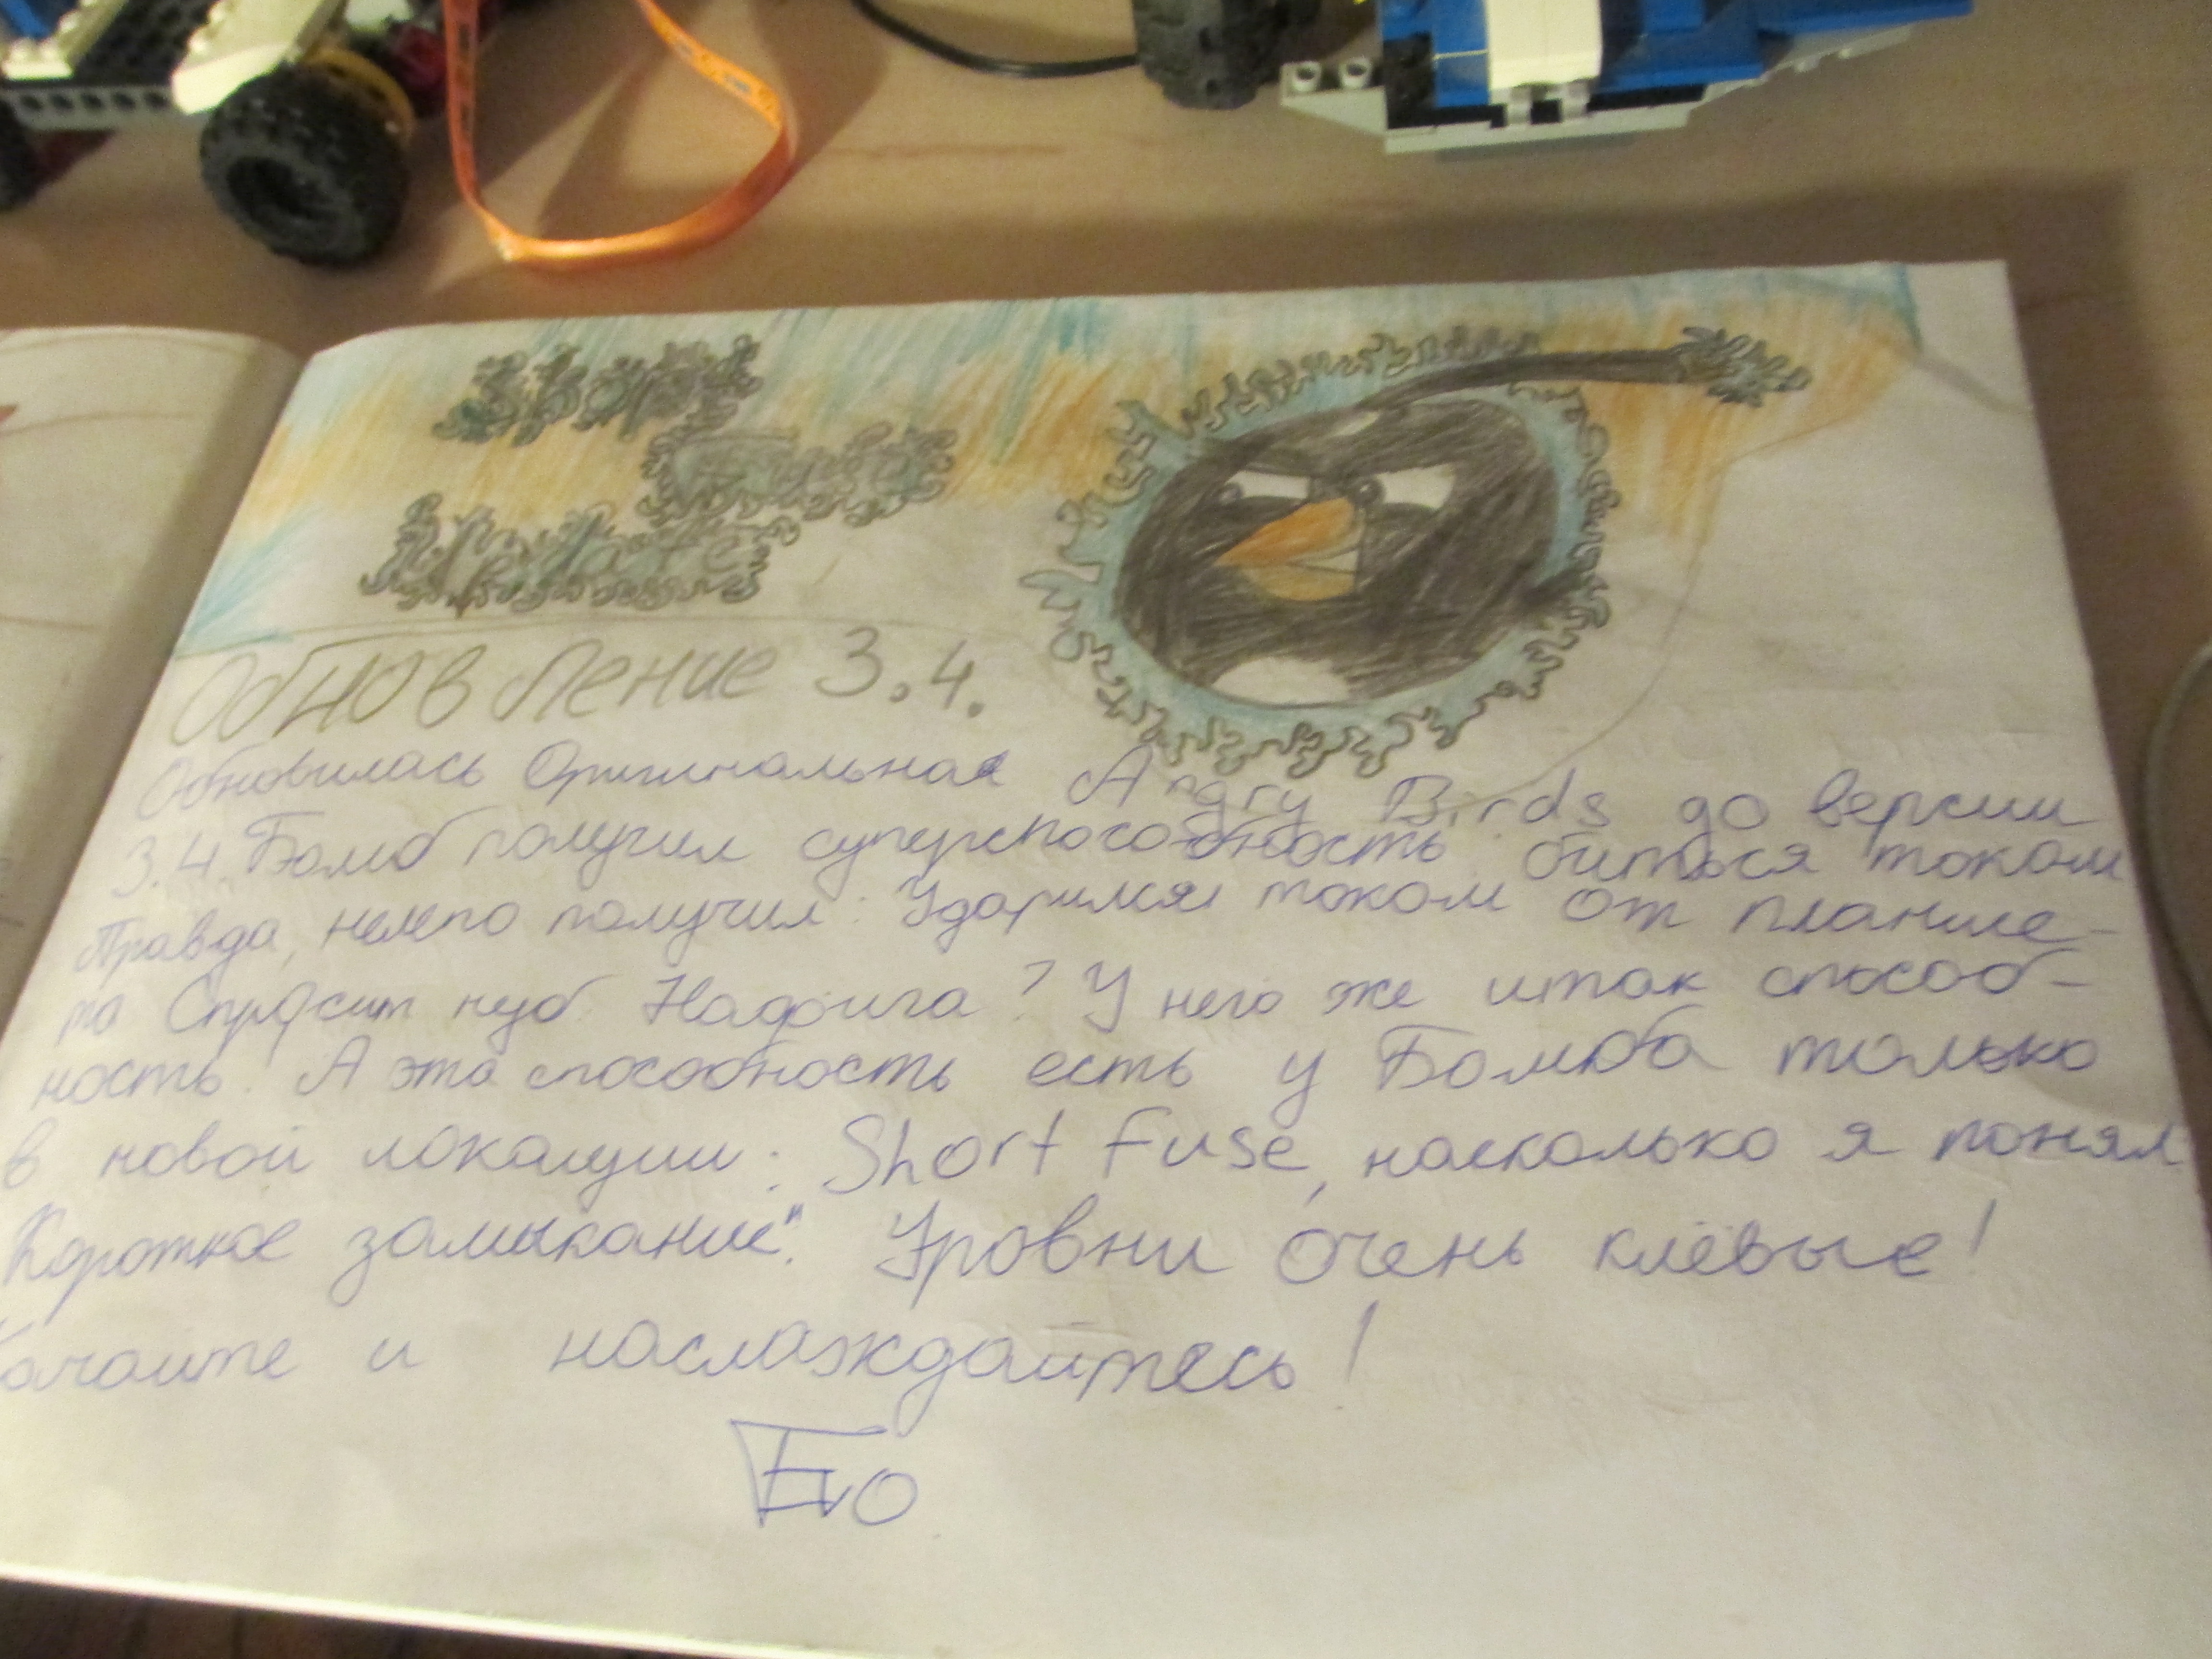 Обновление 3.4.
Обновилась Оригинальная Angry Birds до версии
3.4. Бомб получил суперспособность биться током
Правда, нелепо получил: Ударился током от планше-
та Спросит нуб. Нафига? У него же итак способ-
ность! А эта способность есть у Бомба только
в новой локации: Short Fuse, насколько я понял
Короткое замыкание". Уровни очень клёвые!
Качайте и наслаждайтесь!